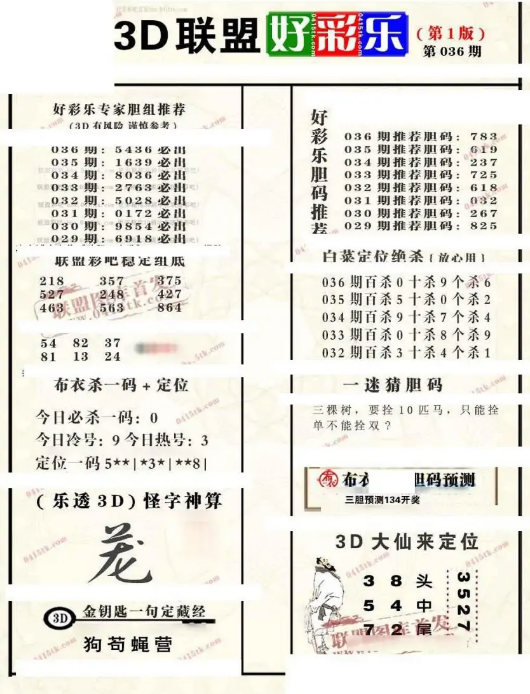 3D联盟好彩乐(第1版)
第036期
好彩乐专家胆组推荐
(3D有风险 谨慎参考)
036期: 5436必出
035期: 1639必出
034期: 8036必出
033期: 2763必出
032期: 5028必出
031期: 0172必出
030期: 9854必出
029期: 6918必出
联盟彩吧稳定组底
218 357 375
527 248 427
463 563 864
54 82 37
81 13 24
布衣杀一码+定位
今日必杀一码: 0
今日冷号: 9 今日热号: 3
定位一码 5**|*3*|**8|
(乐透3D)怪字神算
3D 金钥匙一句定藏经
狗苟蝇营
好彩乐胆码推荐
036期推荐胆码: 783
035期推荐胆码: 619
034期推荐胆码: 237
033期推荐胆码: 725
032期推荐胆码: 618
031期推荐胆码: 032
030期推荐胆码: 267
029期推荐胆码: 825
白菜定位绝杀{放心用}
036期百杀0十杀9个杀6
035期百杀5十杀0个杀2
034期百杀9十杀7个杀4
033期百杀0十杀8个杀9
032期百杀3十杀4个杀1
一迷猜胆码
三棵树，要拴10匹马，只能拴
单不能拴双？
布衣 胆码预测
三胆预测134开奖
3D大仙来定位
3 8 头
5 4 中
7 2 尾
3527
0415tk.com
联盟图库首发
www.0415tk.com